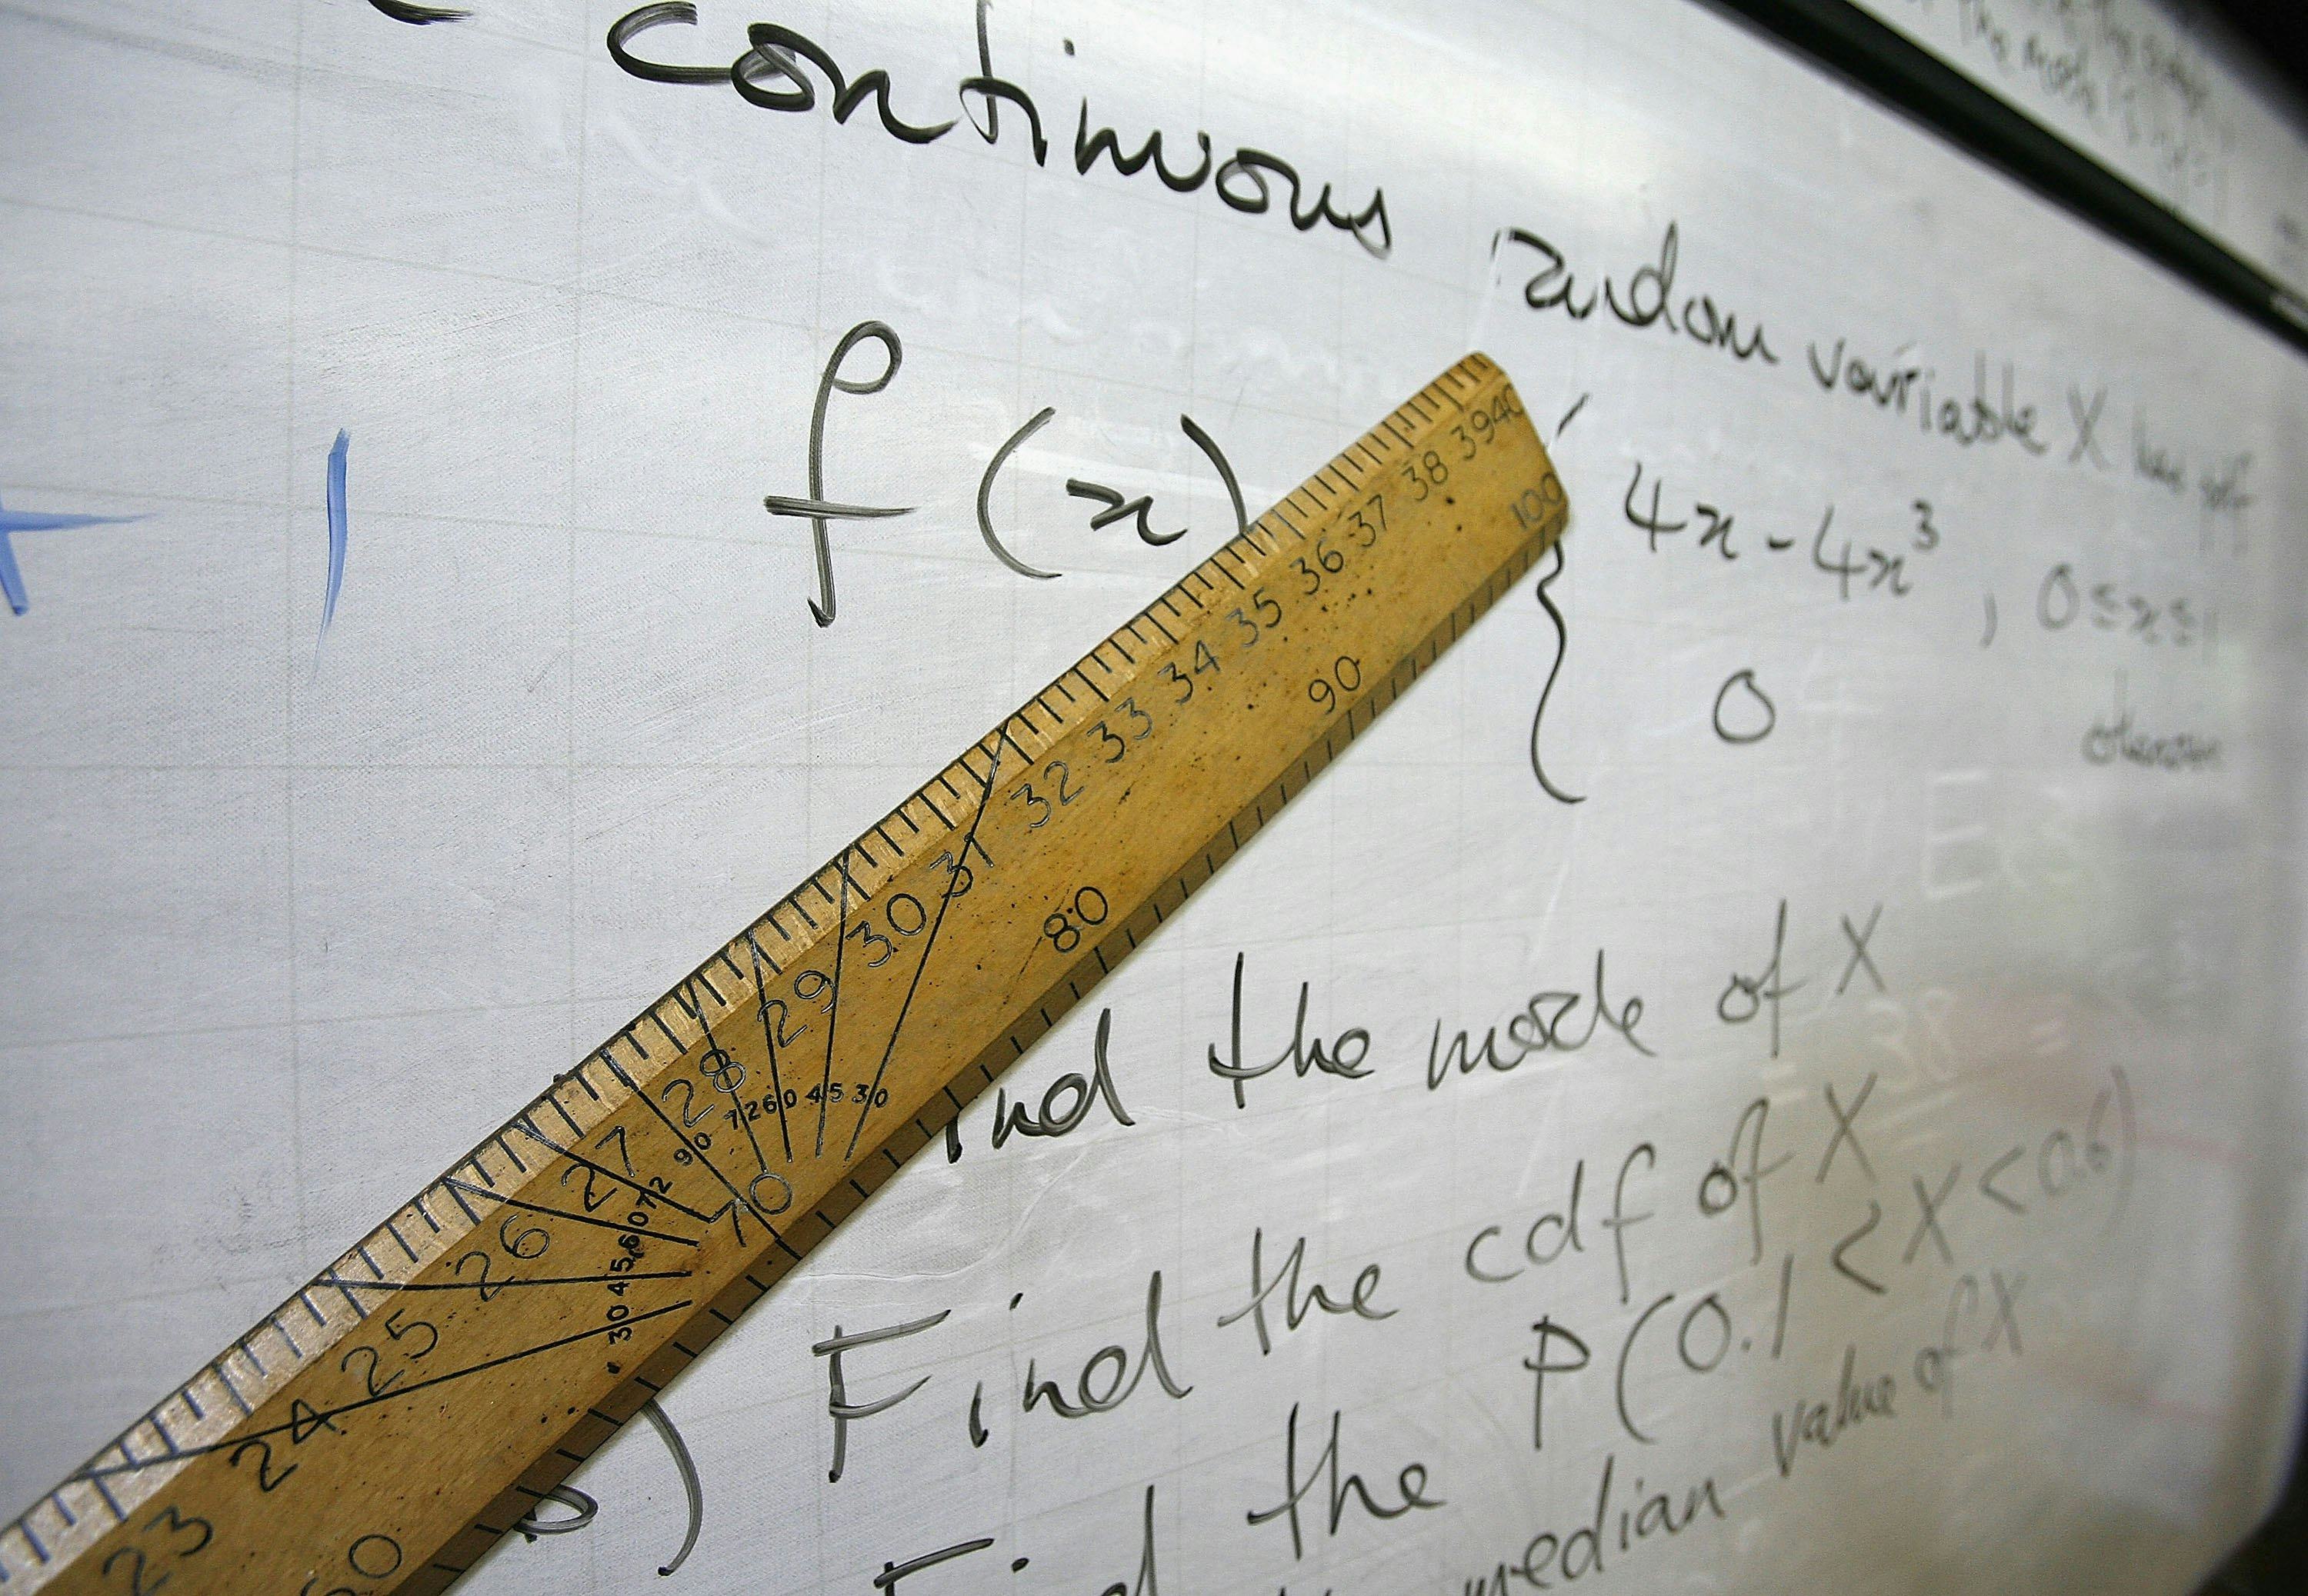 continuous random variable X has pdf
f(x) { 4x - 4x³ , 0 ≤ x ≤ 1
0 otherwise
ind the mode of X
b) Find the cdf of X
Find the P(0.1 < X < 0.6)
median value of X
+ 1
23 24 25 26 27 28 29 30 31 32 33 34 35 36 37 38 39 40
70 80 90 100
30 45 60 72 90 72 60 45 30